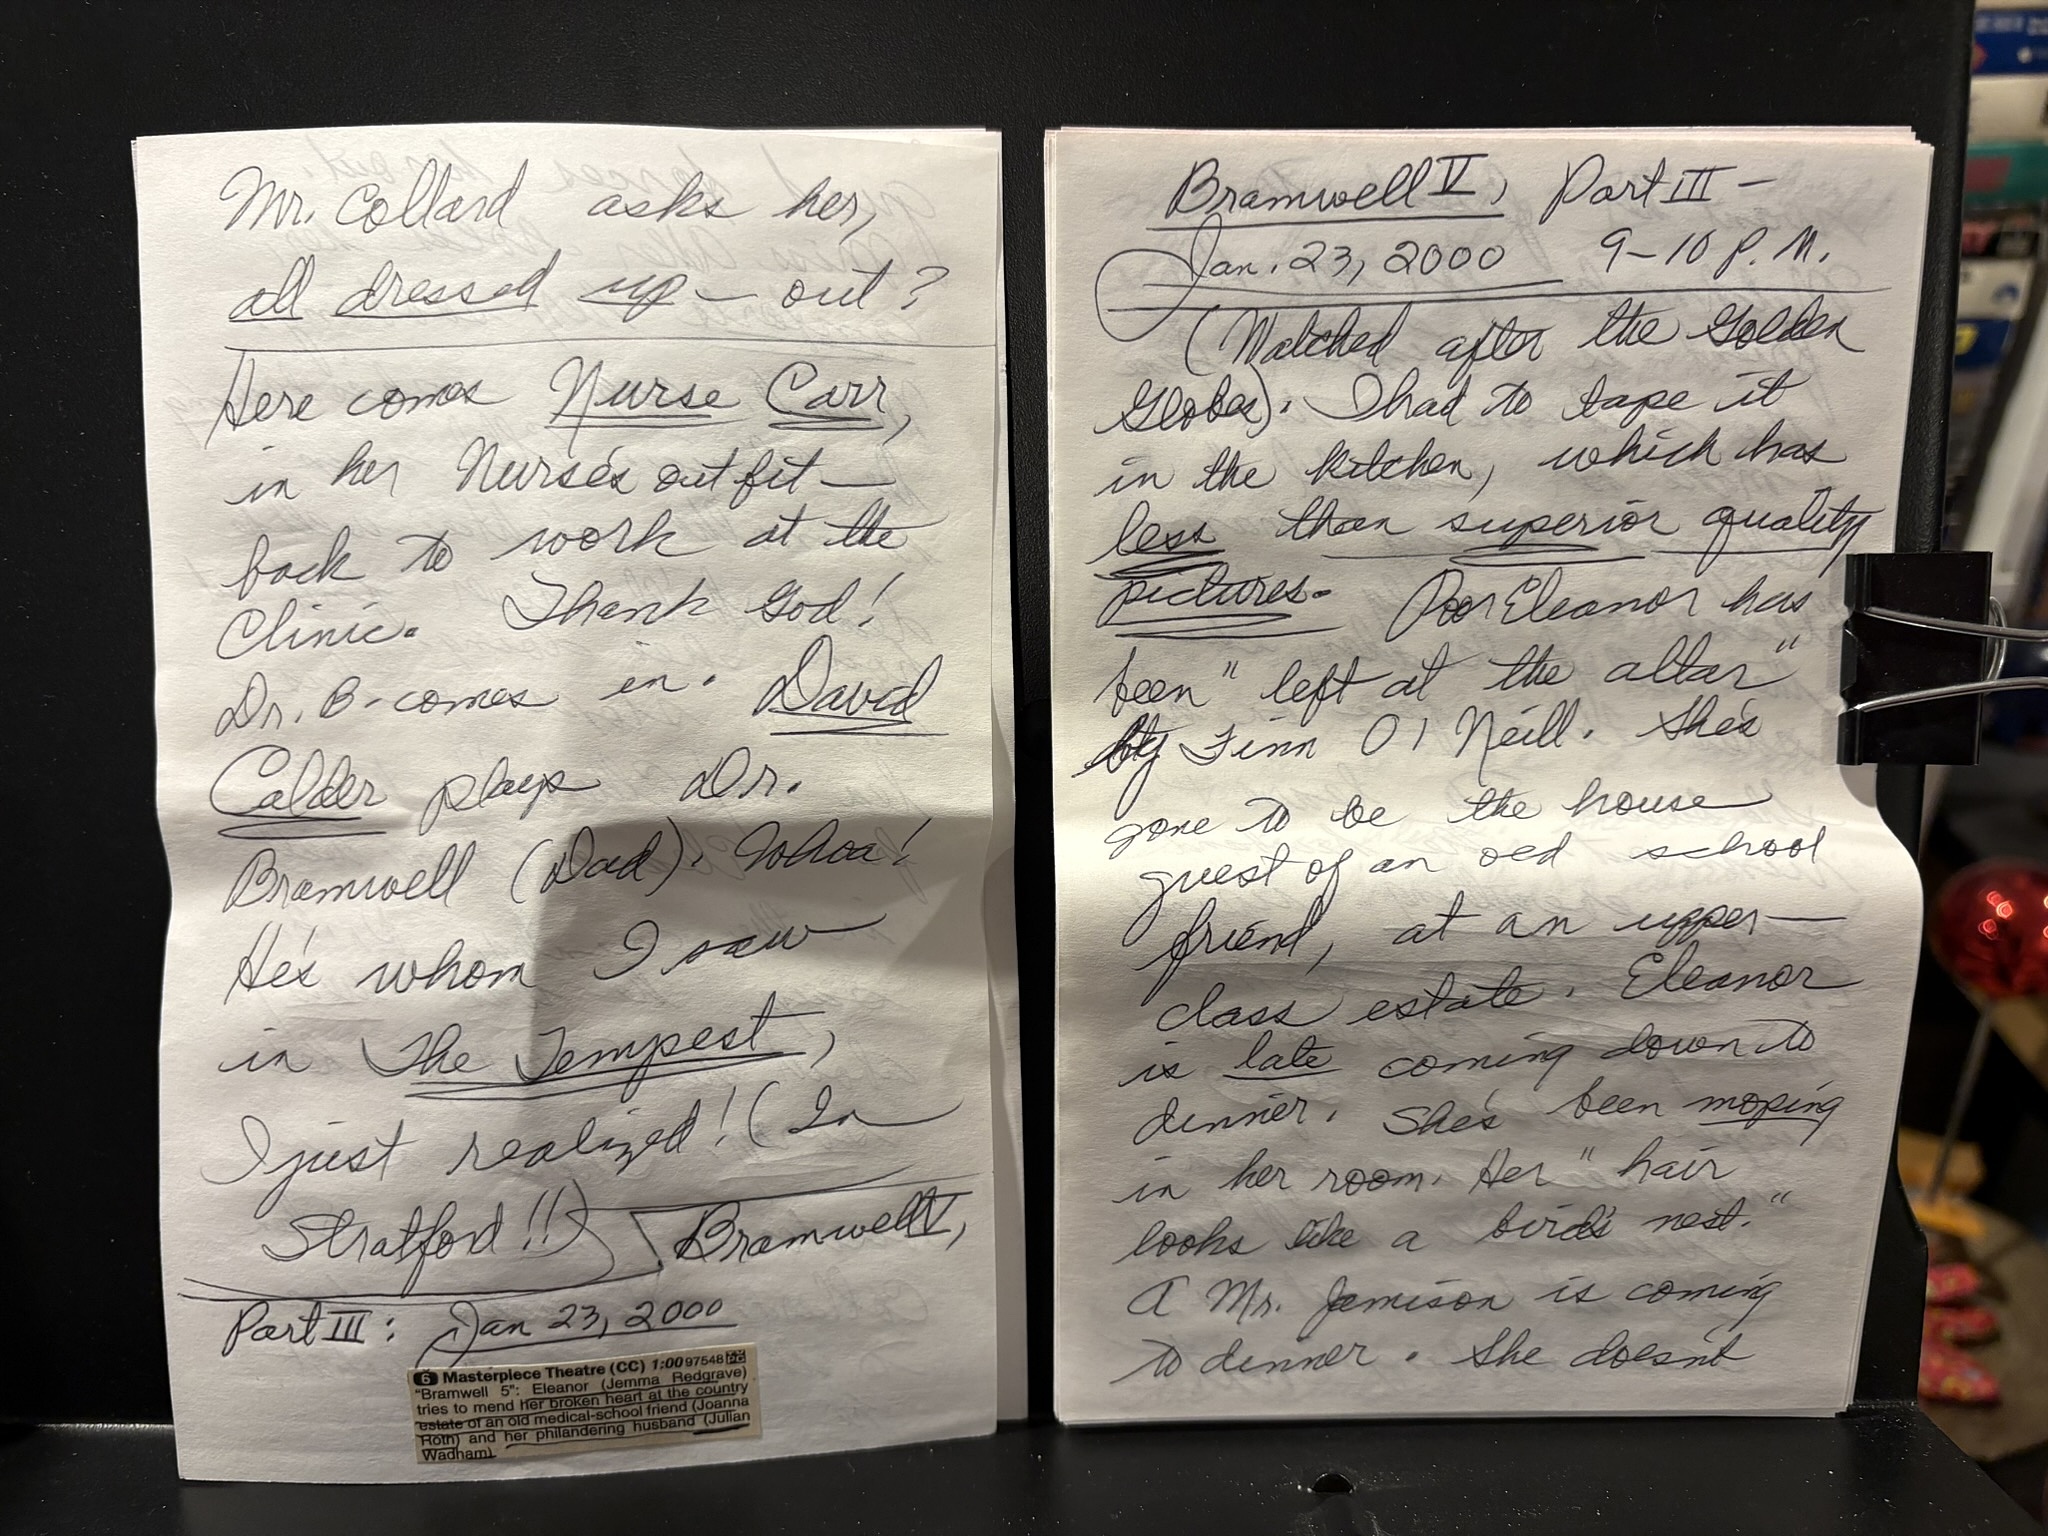 Mr. Collard asks her,
all dressed up — out?
Here comes Nurse Carr,
in her Nurse's outfit —
back to work at the
Clinic. Thank God!
Dr. B. comes in. David
Calder plays Dr.
Bramwell (Dad). Whoa!
He's whom I saw
in The Tempest,
I just realized! (In
Stratford!!)
Bramwell V,
Part III: Jan 23, 2000
6 Masterpiece Theatre (CC) 1:00 97548
"Bramwell 5": Eleanor (Jemma Redgrave)
tries to mend her broken heart at the country
estate of an old medical-school friend (Joanna
Roth) and her philandering husband (Julian
Wadham).
Bramwell V, Part III —
Jan. 23, 2000 9–10 P.M.
(Watched after the Golden
Globes). I had to tape it
in the kitchen, which has
less than superior quality
pictures. Poor Eleanor has
been "left at the altar"
by Finn O'Neill. She's
gone to be the house
guest of an old school
friend, at an upper—
class estate. Eleanor
is late coming down to
dinner. She's been moping
in her room. Her "hair
looks like a bird's nest."
A Mr. Jamison is coming
to dinner. She doesn't